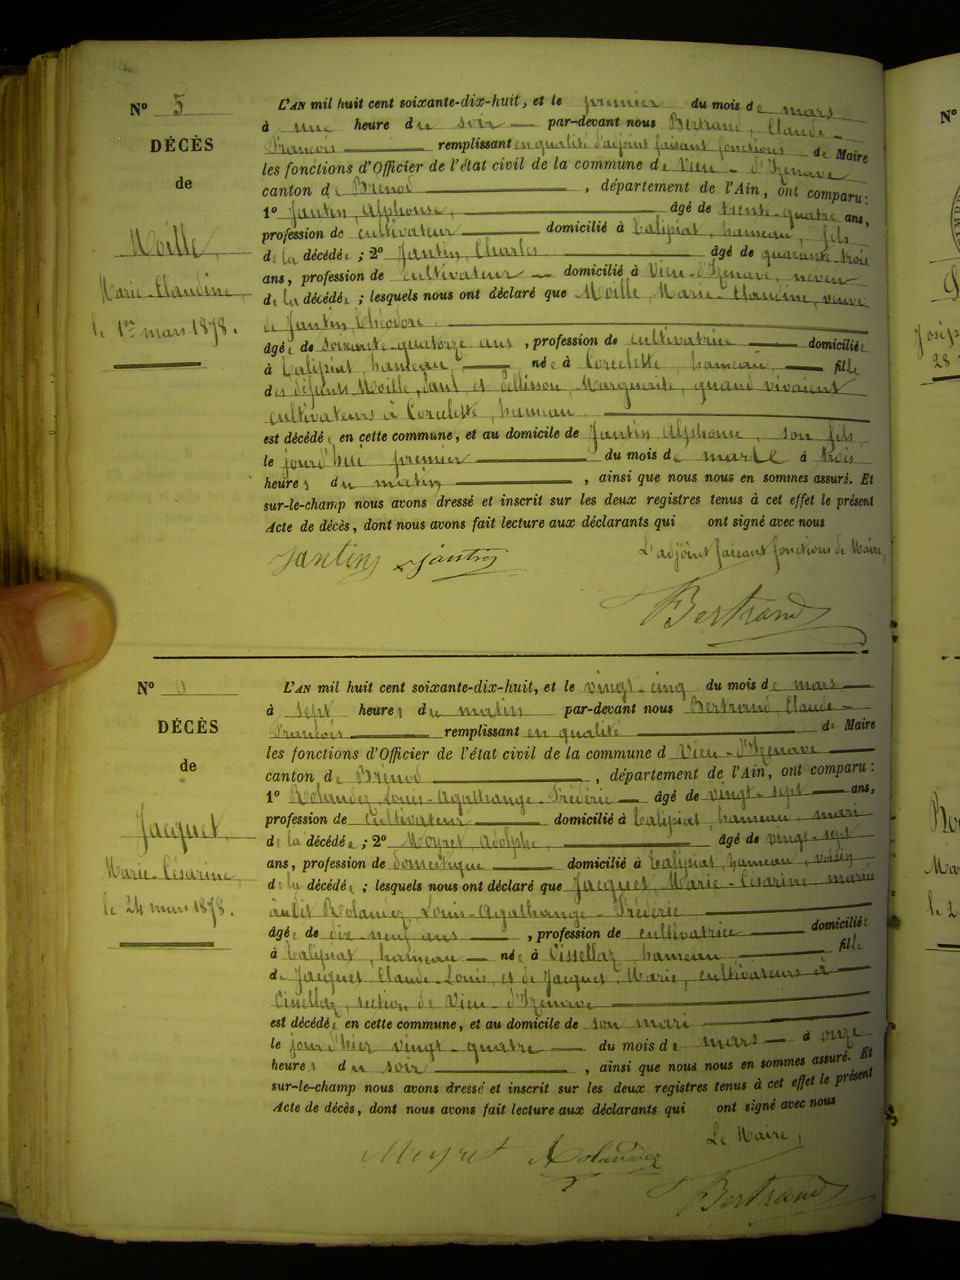 N° 5
DÉCÈS
de
Moille,
Marie-Claudine,
le 1er mars 1878.
L'AN mil huit cent soixante-dix-huit, et le premier du mois de mars
à une heure du soir par-devant nous Bertrand, Claude-
François remplissant en qualité d'adjoint faisant fonctions de Maire
les fonctions d'Officier de l'état civil de la commune de Vieu-d'Izenave
canton de Brénod, département de l'Ain, ont comparu:
1° Jantin, Alphonse, âgé de trente-quatre ans,
profession de cultivateur domicilié à Balipiat, hameau, fils
de la décédée; 2° Jantin, Charles âgé de quarante-trois
ans, profession de cultivateur domicilié à Vieu-d'Izenave, neveu
de la décédée; lesquels nous ont déclaré que Moille, Marie-Claudine, veuve
de Jantin, Théodore.
âgée de soixante-quatorze ans, profession de cultivatrice domiciliée
à Balipiat, hameau née à Corcelette, hameau fille
des défunts Moille, et Pellisson, Marguerite, quand vivaient
cultivateurs à Corcelette, hameau.
est décédée en cette commune, et au domicile de Jantin Alphonse, son fils,
le jourd'hui premier du mois de mars à trois
heures du matin, ainsi que nous nous en sommes assuré. Et
sur-le-champ nous avons dressé et inscrit sur les deux registres tenus à cet effet le présent
Acte de décès, dont nous avons fait lecture aux déclarants qui ont signé avec nous
L'adjoint faisant fonctions de Maire,
Jantin Jantin
Bertrand
N°
DÉCÈS
de
Jacquet,
Marie-Césarine,
le 24 mars 1878.
L'AN mil huit cent soixante-dix-huit, et le vingt-cinq du mois de mars
à sept heures du matin par-devant nous Bertrand, Claude-
François remplissant en qualité de Maire
les fonctions d'Officier de l'état civil de la commune d Vieu-d'Izenave
canton de Brénod, département de l'Ain, ont comparu:
1° Rolandez, Louis-Agathange-Frédéric âgé de vingt-sept ans,
profession de cultivateur domicilié à Balipiat, hameau, mari
de la décédée; 2° Moyret, Adolphe, âgé de vingt-sept
ans, profession de domestique domicilié à Balipiat, hameau, voisin
de la décédée; lesquels nous ont déclaré que Jacquet, Marie-Césarine, mariée
audit Rolandez, Louis-Agathange-Frédéric
âgée de dix-neuf ans, profession de cultivatrice domiciliée
à Balipiat, hameau née à Cissellaz, hameau fille
de Jacquet, Claude-Louis, et de Jacquet, Marie, cultivateurs à
Cissellaz, section de Vieu-d'Izenave
est décédée en cette commune, et au domicile de son mari
le jour d'hier vingt-quatre du mois de mars à onze
heures du soir, ainsi que nous nous en sommes assuré. Et
sur-le-champ nous avons dressé et inscrit sur les deux registres tenus à cet effet le présent
Acte de décès, dont nous avons fait lecture aux déclarants qui ont signé avec nous
Le Maire,
Moyret Rolandez
Bertrand